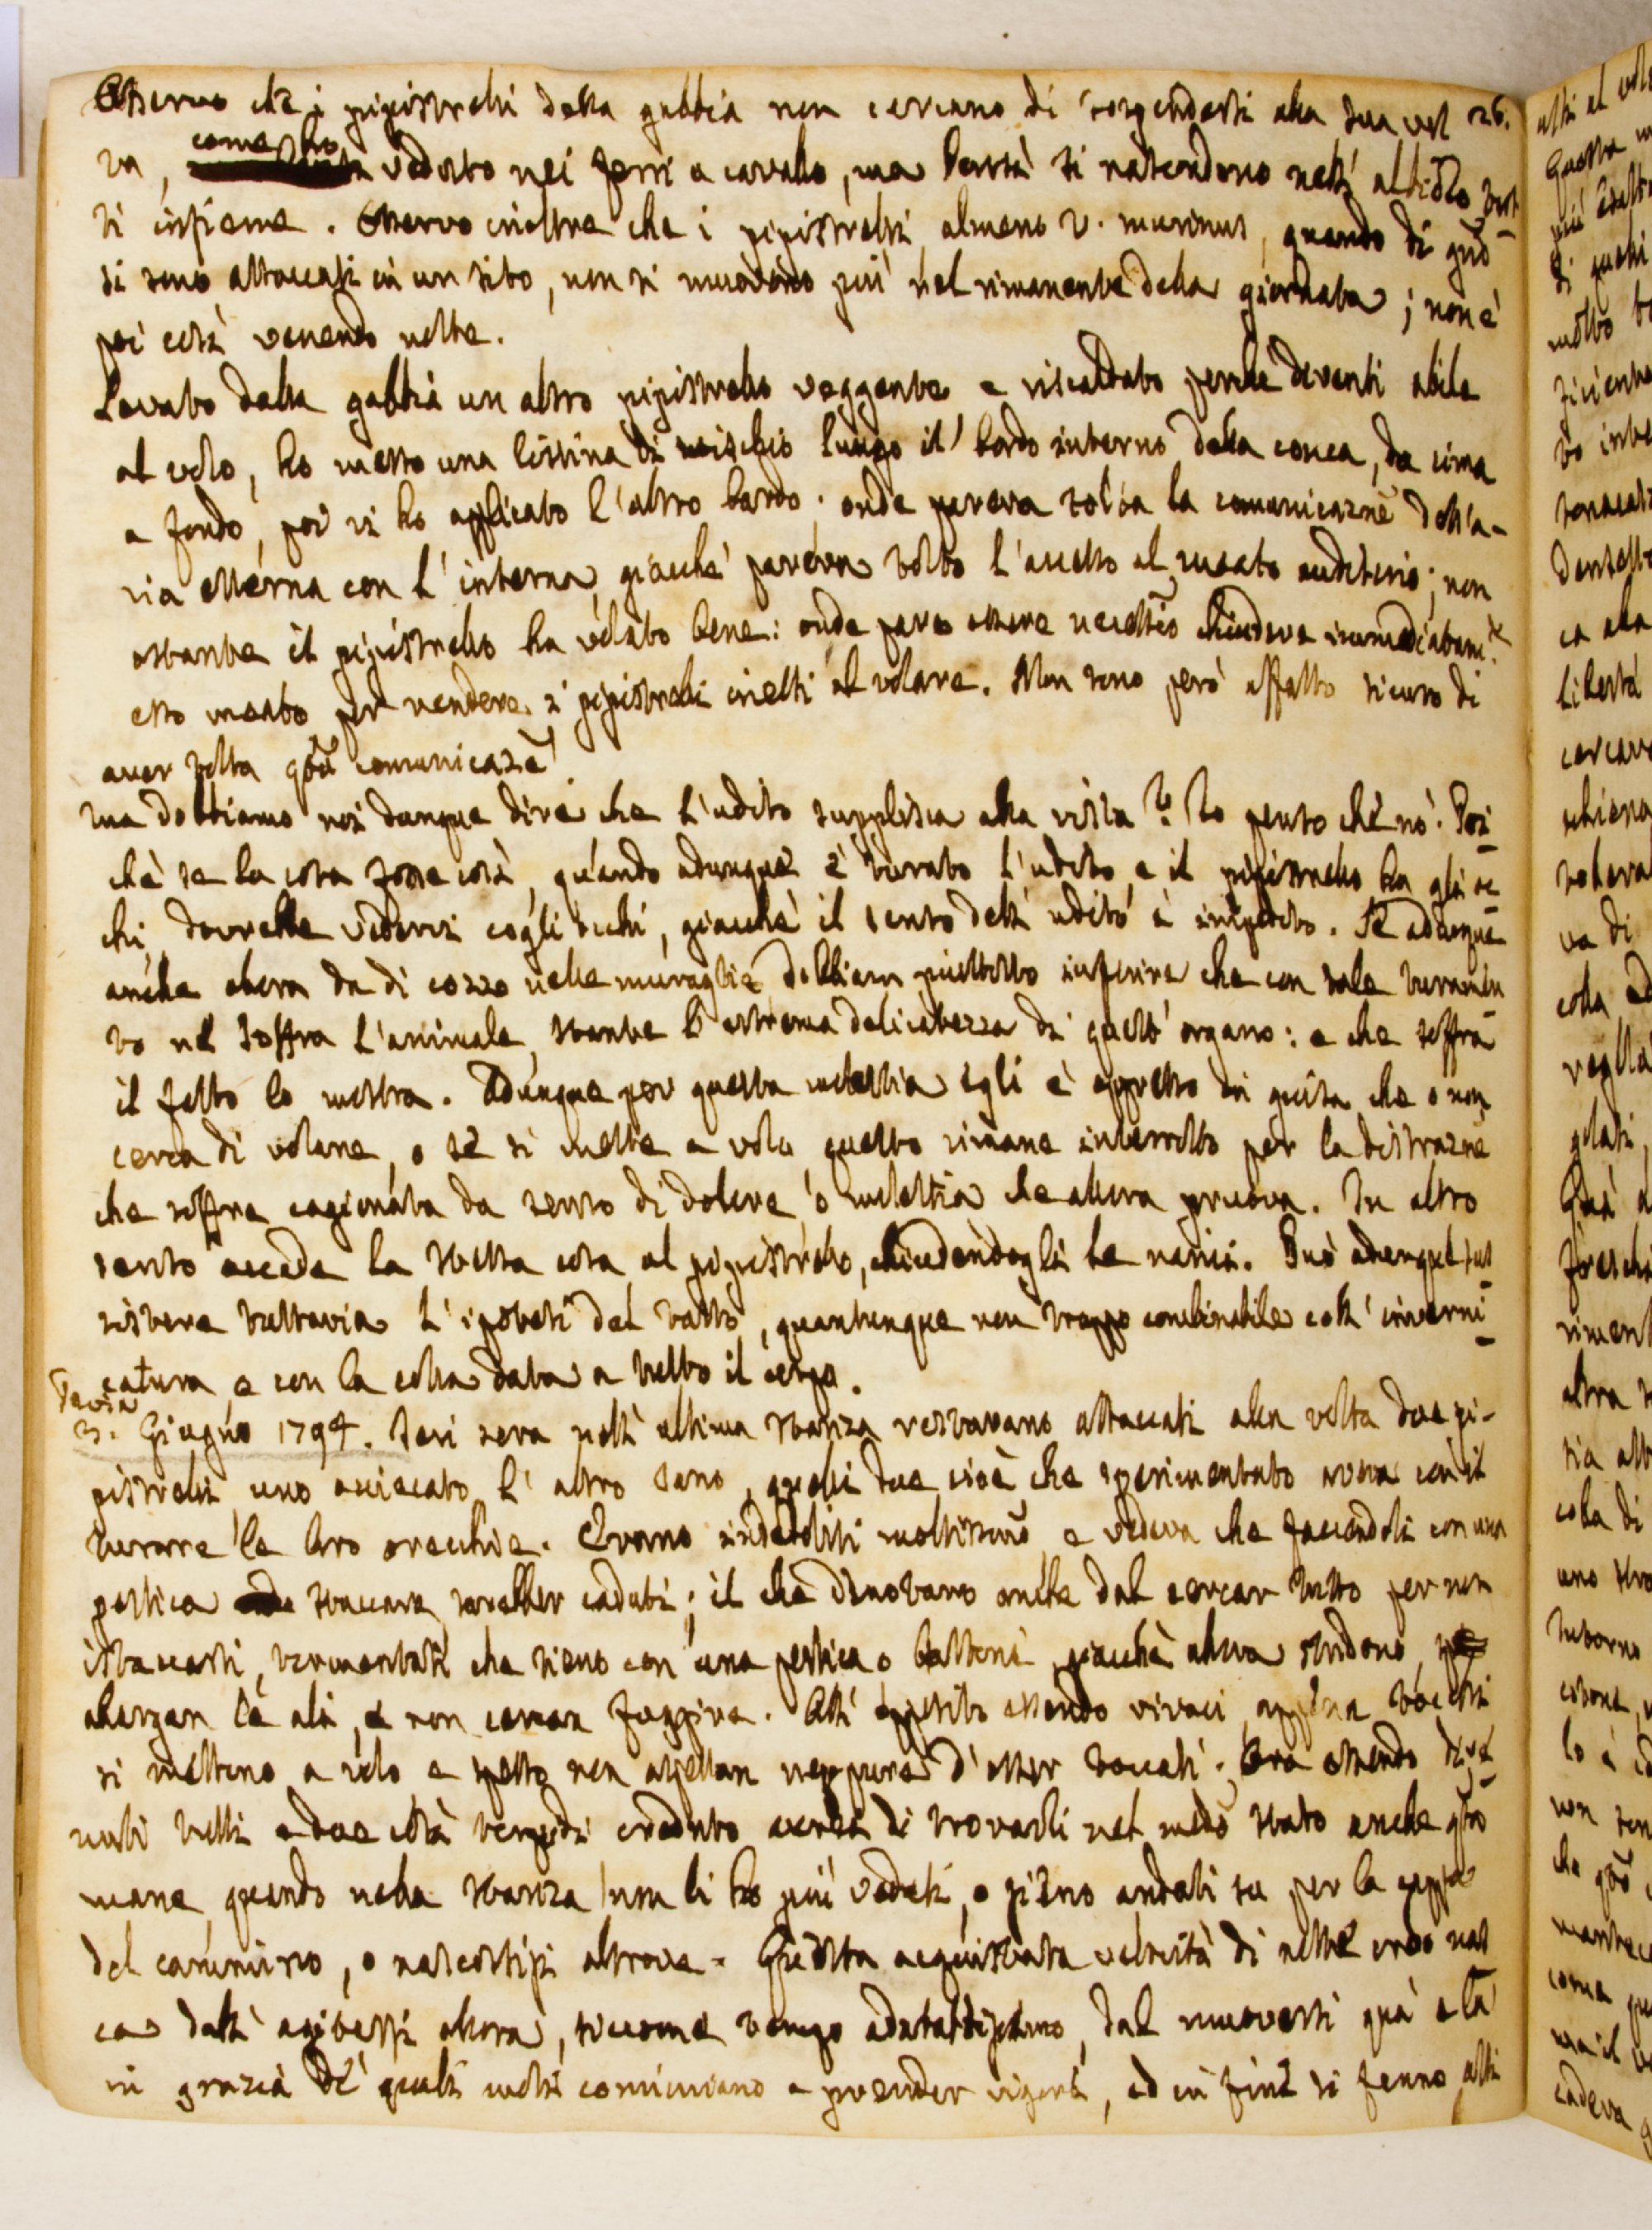 Osservo che i pipistrelli della gabbia non cercano di sospendersi alla sua vol 26.
ta, come ho veduto nei ferri a cavallo, ma bensì si nascondono nell'
ti insieme. Osservo inoltre che i pipistrelli almeno V. murinus, quando di gno
si sono attaccati in un sito, non si muovono più nel rimanente della giornata; non è
poi così venendo notte.
Levato dalla gabbia un altro pipistrello veggente e riscaldato perchè diventi abile
al volo, ho messo una listina di vischio lungo il bordo interno della conca, da cima
a fondo, poi vi ho applicato l'altro bordo: onde pareva tolta la comunicazne dell'a-
ria esterna con l'interna, giacchè pareva tolto l'accesso al meato auditorio; non
ostante il pipistrello ha volato bene: onde pare essere chiudere immediatam.e
esso meato per rendere i pipistrelli inetti al volare. Non sono però affatto sicuro di
aver tolta qta comunicazne.
Ma dobbiamo noi dunque dire che l'udito supplisca alla vista? Io penso che nò. Poi-
chè se la cosa fosse così, quando adunque è turato l'udito, e il pipistrello ha gli oc-
chi, dovrebbe vederci cogli occhi, giacchè il senso dell'udito è impedito. Se adunque
anche allora dà di cozzo nelle muraglie, dobbiam piuttosto inferire che con tale turamen
to ne soffra l'animale, stante l'estrema delicatezza di quest'organo: e che soffra
il fatto lo mostra. Adunque per questa molestia egli è oppresso in guisa che o non
cerca di volare, o se si mette a volo questo rimane interrotto per la distrazne
che soffre cagionata da senso di dolore, o molestia che allora pruova. In altro
senso accade la stessa cosa al pipistrello, chiudendogli le narici. Può adunque sus
sistere tuttavia l'ipotesi del tatto, quantunque non troppo combinabile coll'inverni-
catura, e con la colla data a tutto il corpo.
Pavia
3. Giugno 1794. Jeri sera nell'ultima stanza restavano attaccati alla volta due pi-
pistrelli uno acciecato, l'altro sano, quelli due cioè che sperimentato aveva con il
turare le loro orecchie. Erano indeboliti moltissimo, e vedeva che facendoli con una
pertica staccare, sarebber caduti; il che denotano anche dal cercar tutto per non
istaccarsi, tormentati che sieno con una pertica o bastone, giacchè allora stridono,
allargan le ali, e non cercan fuggire. All'opposito essendo vivaci, appena toccati
si mettono a volo, e spesso non aspettan neppure d'esser toccati. Ora essendo dive
nuti tutti e due così torpidi creduto avrei di trovarli nel medo stato anche qta
mane, quando nella stanza non li ho più veduti, o sieno andati su per la cappa
del cammino, o nascostisi altrove. Questa acquistata velocità di notte credo nas
ca dall'agitarsi allora, siccome vengo adattatissimo, dal muoversi quà e là
in grazia de' quali moti cominciano a prender vigore, ed in fine si fanno atti